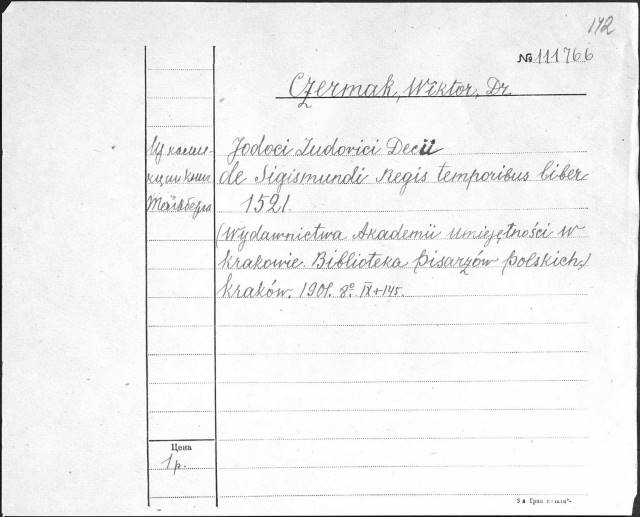 172
№ 111766
Czermak, Wiktor, Dr.
Jodoci Ludovici Decii
de Sigismundi Regis temporibus liber
1521
(Wydawnictwa Akademii umiejętności w
krakowie. Biblioteka pisarzów polskich)
kraków. 1901. 8º IX+145.
Цена
1 р.